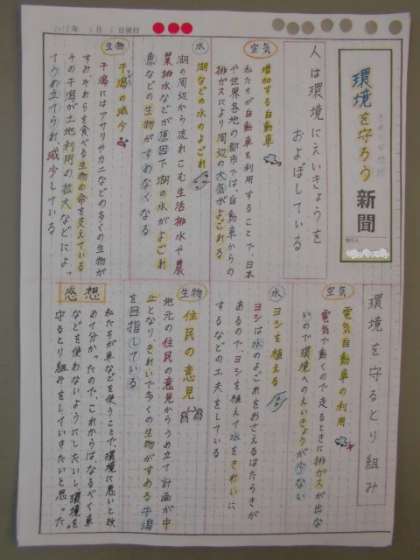 環境を守ろう新聞
人は環境にえいきょうを
およぼしている
空気
増加する自動車
私たちが自動車を利用することで、日本
や世界各地の都市では、自動車からの
排がスにより周辺の大気がよごれる
水
湖などの水のよごれ
湖の周辺から流れこむ生活排水や農
業排水などが原因で湖の水がよごれ
魚などの生物がすめなくなる
生物
干潟の減少
干潟にはアサリやカニなどの多くの生物が
すみそれらを食べる生物の命を支えている
その干潟が土地利用の拡大などによって
うめ立てられ減少している
環境を守るとり組み
空気
電気自動車の利用
電気で動くので、走るときに排ガスが出な
いので環境へのえいきょうが少ない
水
ヨシを植える
ヨシは水のよごれをおさえるはたらきが
あるのでヨシを植えて水をきれいに
するなどの工夫をしている
生物
住民の意見
地元の住民の意見からうめ立て計画が中
止となりきれいで多くの生物がすめる干潟
を目指している
感想
私たちが車などを使うことで、環境に悪いと改
めて分かったので、これからはなるべく車
などを使わないようにしたいし、環境を
守るとり組みをしていきたいと思った。